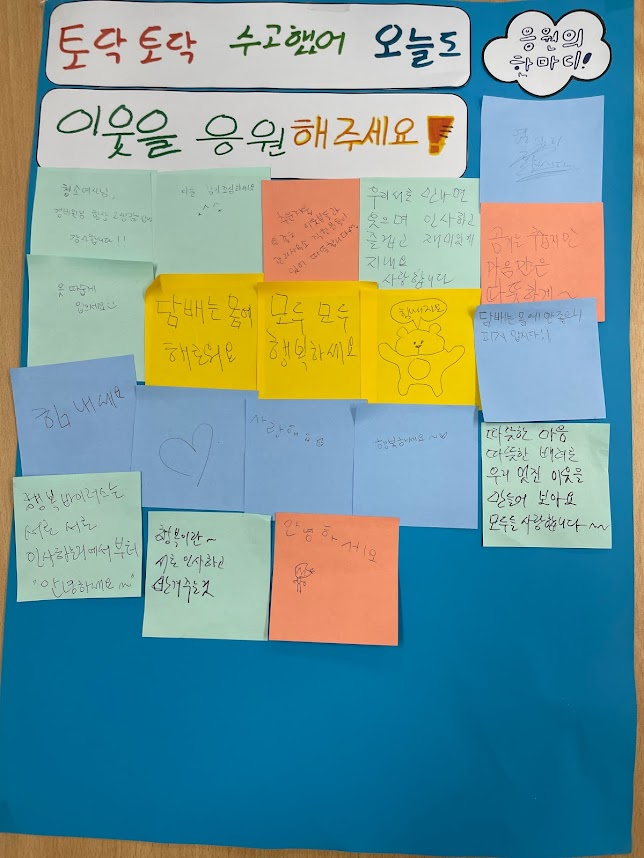 토닥토닥 수고했어 오늘도
응원의
한마디!
이웃을 응원해주세요!
청소여사님,
경비원님 항상
감사합니다!!
^^
우리 서로 만나면
웃으며 인사하고
즐겁고 재미있게
지내요
사랑합니다
마음만은
따뜻하게~
옷 따뜻하게
입으세요
담배는 몸에
해로워요
모두 모두
행복하세요
힘내세요
담배는 몸에 안 좋으니
피지 맙시다!!
힘내세요
사랑해요
행복하세요~
따뜻한 마음
따뜻한 배려로
우리 멋진 이웃을
만들어 보아요
모두들 사랑합니다~~
행복바이러스는
서로 서로
인사하는데에서부터
"안녕하세요~"
행복이란~
서로 인사하고
안녕하세요